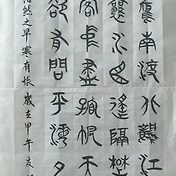 雁南渡北風江
襄水曲遙隔楚
客中盡孤帆天
欲有問平海夕
浩然之早寒有懷 歲在甲午